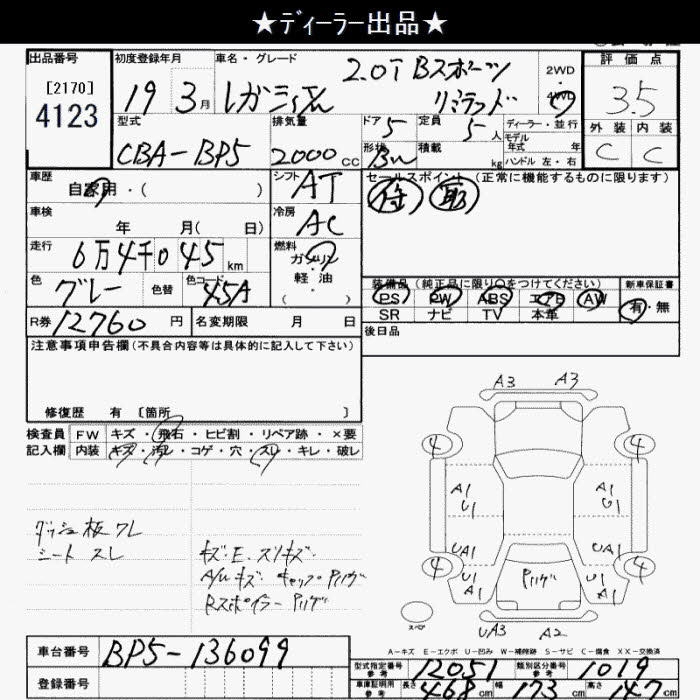 ★ディーラー出品★
出品番号
[2170]
4123
初度登録年月
19 3月
車名・グレード
2.0T Bスポーツ
リミテッド
2WD
4WD
評価点
3.5
外装 内装
C C
型式
CBA-BP5
排気量
2000cc
ドア 5
定員 5人
形状
積載 kg
ディーラー・並行
モデル
年式 年
ハンドル 左・右
車歴
自家用・( )
シフト
AT
セールスポイント (正常に機能するものに限ります)
車検
年 月( 日)
冷房
AC
走行
6万4千045km
燃料
ガソリン
・
軽油
( )
色
グレー
色替
色コード
45A
装備品 (純正品に限り○をつけてください)
新車保証書
PS PW ABS エアB AW
有・無
SR ナビ TV 本革
R券 12760円
名変期限 月 日
後日品
注意事項申告欄 (不具合内容等は具体的に記入して下さい)
修復歴 有 〔箇所 〕
検査員
記入欄
FW キズ・飛石・ヒビ割・リペア跡・×要
内装 キズ・汚レ・コゲ・穴・スレ・キレ・破レ
A3 A3
4 4
A1 A1
U1 U1
UA1 UA1
4 4
U1 U1
A1 A1
UA3 A2
スペア
ダッシュ板ワレ
シート スレ
キズ・E・スリキズ・
A/Wキズ・キャップ・
Rスポイラー
A-キズ E-エクボ U-凹み W-補修跡 S-サビ C-腐食 XX-交換済
車台番号
BP5-136099
登録番号
型式指定番号
参考
12051
類別区分番号
参考
1019
車庫証明用
参考
長さ 468cm 幅 173cm 高さ 147cm